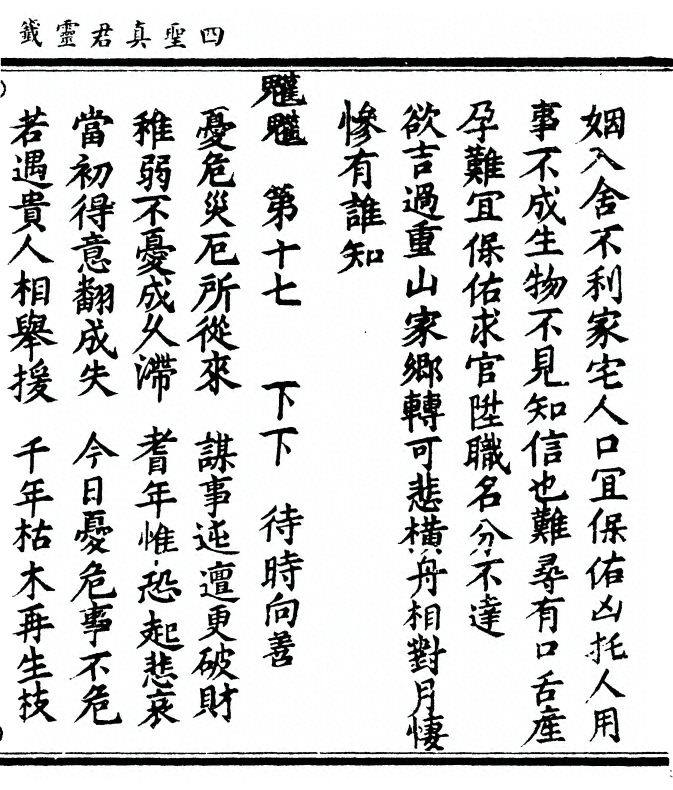 四聖真君靈籤
姻入舍不利家宅人口宜保佑凶托人用
事不成生物不見知信也難尋有口舌產
孕難宜保佑求官陞職名分不達
欲吉過重山家鄉轉可悲橫舟相對月悽
慘有誰知
第十七 下下 待時向善
憂危災厄所從來 謀事迍邅更破財
稚弱不憂成久滯 耆年惟恐起悲哀
當初得意翻成失 今日憂危事不危
若遇貴人相舉援 千年枯木再生枝